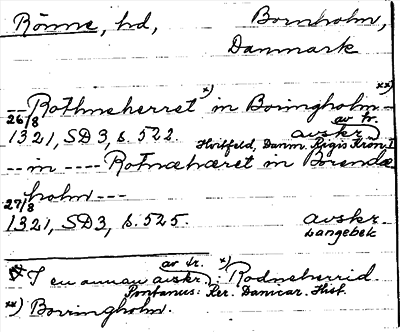 Rönne, hd, Bornholm,
Danmark
--Rothneherret x) in Boringholm-- xx)
26/8 av tr.
1321, SD3, s. 522. avskr.
Hvitfeld, Danm. Rigis Krön. I
--in ---- Rotnæhæret in Borendæ
holm ---
27/8
1321, SD3, s. 525. avskr.
Langebek
av tr.
x) I en annan avskr.: x) Rodneherrid.
Pontanus: Rer. Danicar. Hist.
xx) Borringholm.